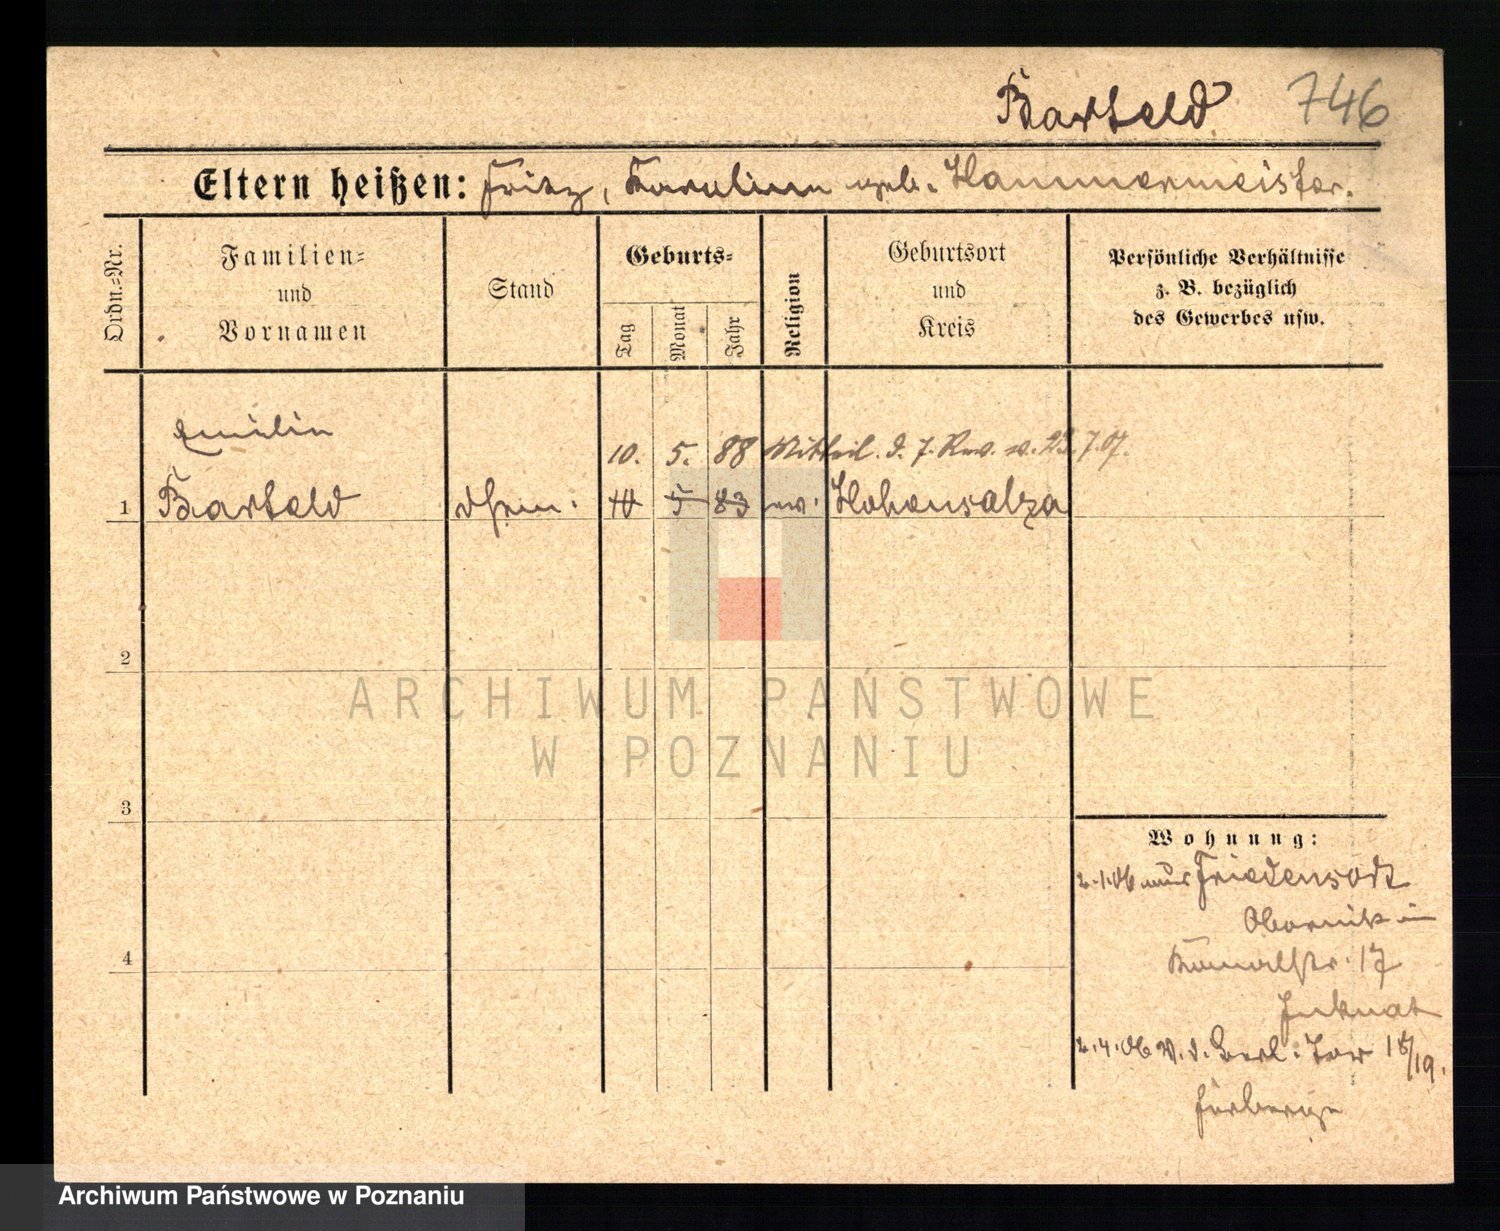 Barteld 746
Eltern heißen: Fritz, Karoline geb. Hammermeister.
Ordn.=Nr.
Familien=
und
Vornamen
Stand
Geburts=
Tag
Monat
Jahr
Religion
Geburtsort
und
Kreis
Persönliche Verhältnisse
z. B. bezüglich
des Gewerbes usw.
Emilie
10. 5. 88 Mitteil. d. 7. Rev. v. 23.7.07.
1 Barteld 10 5 83 ev. Hohensalza
2
3
4
Wohnung:
2.1.06 aus Friedensort
Obornik in
Kanalstr. 17
2.4.06 V. d. Berl. Tor 18/19.
ARCHIWUM PAŃSTWOWE
W POZNANIU
Archiwum Państwowe w Poznaniu